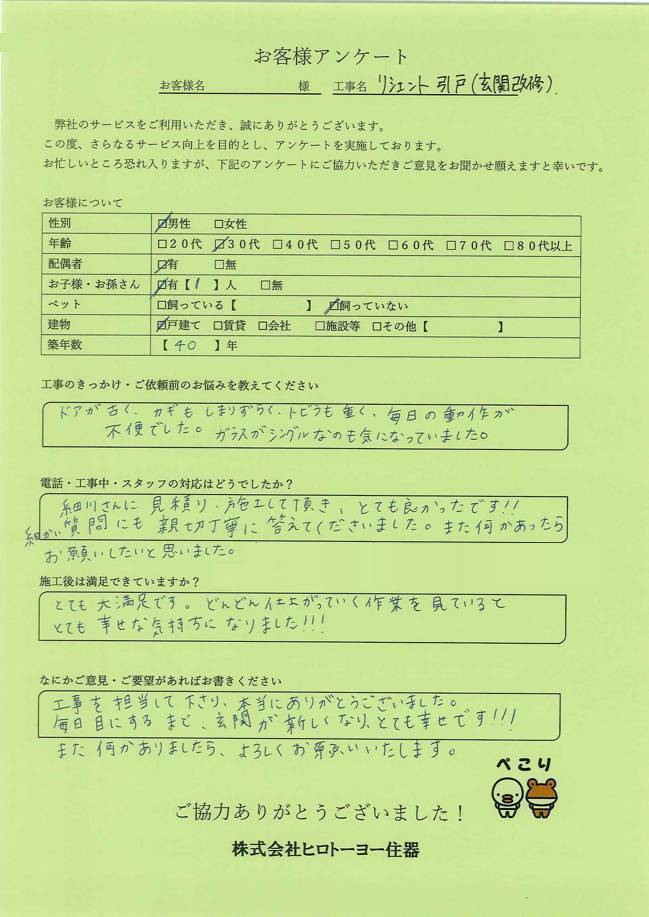 お客様アンケート
お客様名 様 工事名 リシェント 引戸(玄関改修).
弊社のサービスをご利用いただき、誠にありがとうございます。
この度、さらなるサービス向上を目的とし、アンケートを実施しております。
お忙しいところ恐れ入りますが、下記のアンケートにご協力いただきご意見をお聞かせ願えますと幸いです。
お客様について
性別 ☑男性 □女性
年齢 □20代 ☑30代 □40代 □50代 □60代 □70代 □80代以上
配偶者 ☑有 □無
お子様・お孫さん ☑有【1】人 □無
ペット □飼っている【 】 ☑飼っていない
建物 ☑戸建て □賃貸 □会社 □施設等 □その他【 】
築年数 【40】年
工事のきっかけ・ご依頼前のお悩みを教えてください
ドアが古く、カギもしまりずらく、トビラも重く、毎日の動作が
不便でした。ガラスがシングルなのも気になっていました。
電話・工事中・スタッフの対応はどうでしたか?
細川さんに見積り、施工して頂き、とても良かったです!!
細かい質問にも親切丁寧に答えてくださいました。また何があったら
お願いしたいと思いました。
施工後は満足できていますか?
とても大満足です。どんどん仕上がっていく作業を見ていると
とても幸せな気持ちになりました!!!
なにかご意見・ご要望があればお書きください
工事を担当して下さり、本当にありがとうございました。
毎日目にするまで、玄関が新しくなり、とても幸せです!!!
また何かありましたら、よろしくお願いいたします。
ぺこり
ご協力ありがとうございました!
株式会社ヒロトーヨー住器